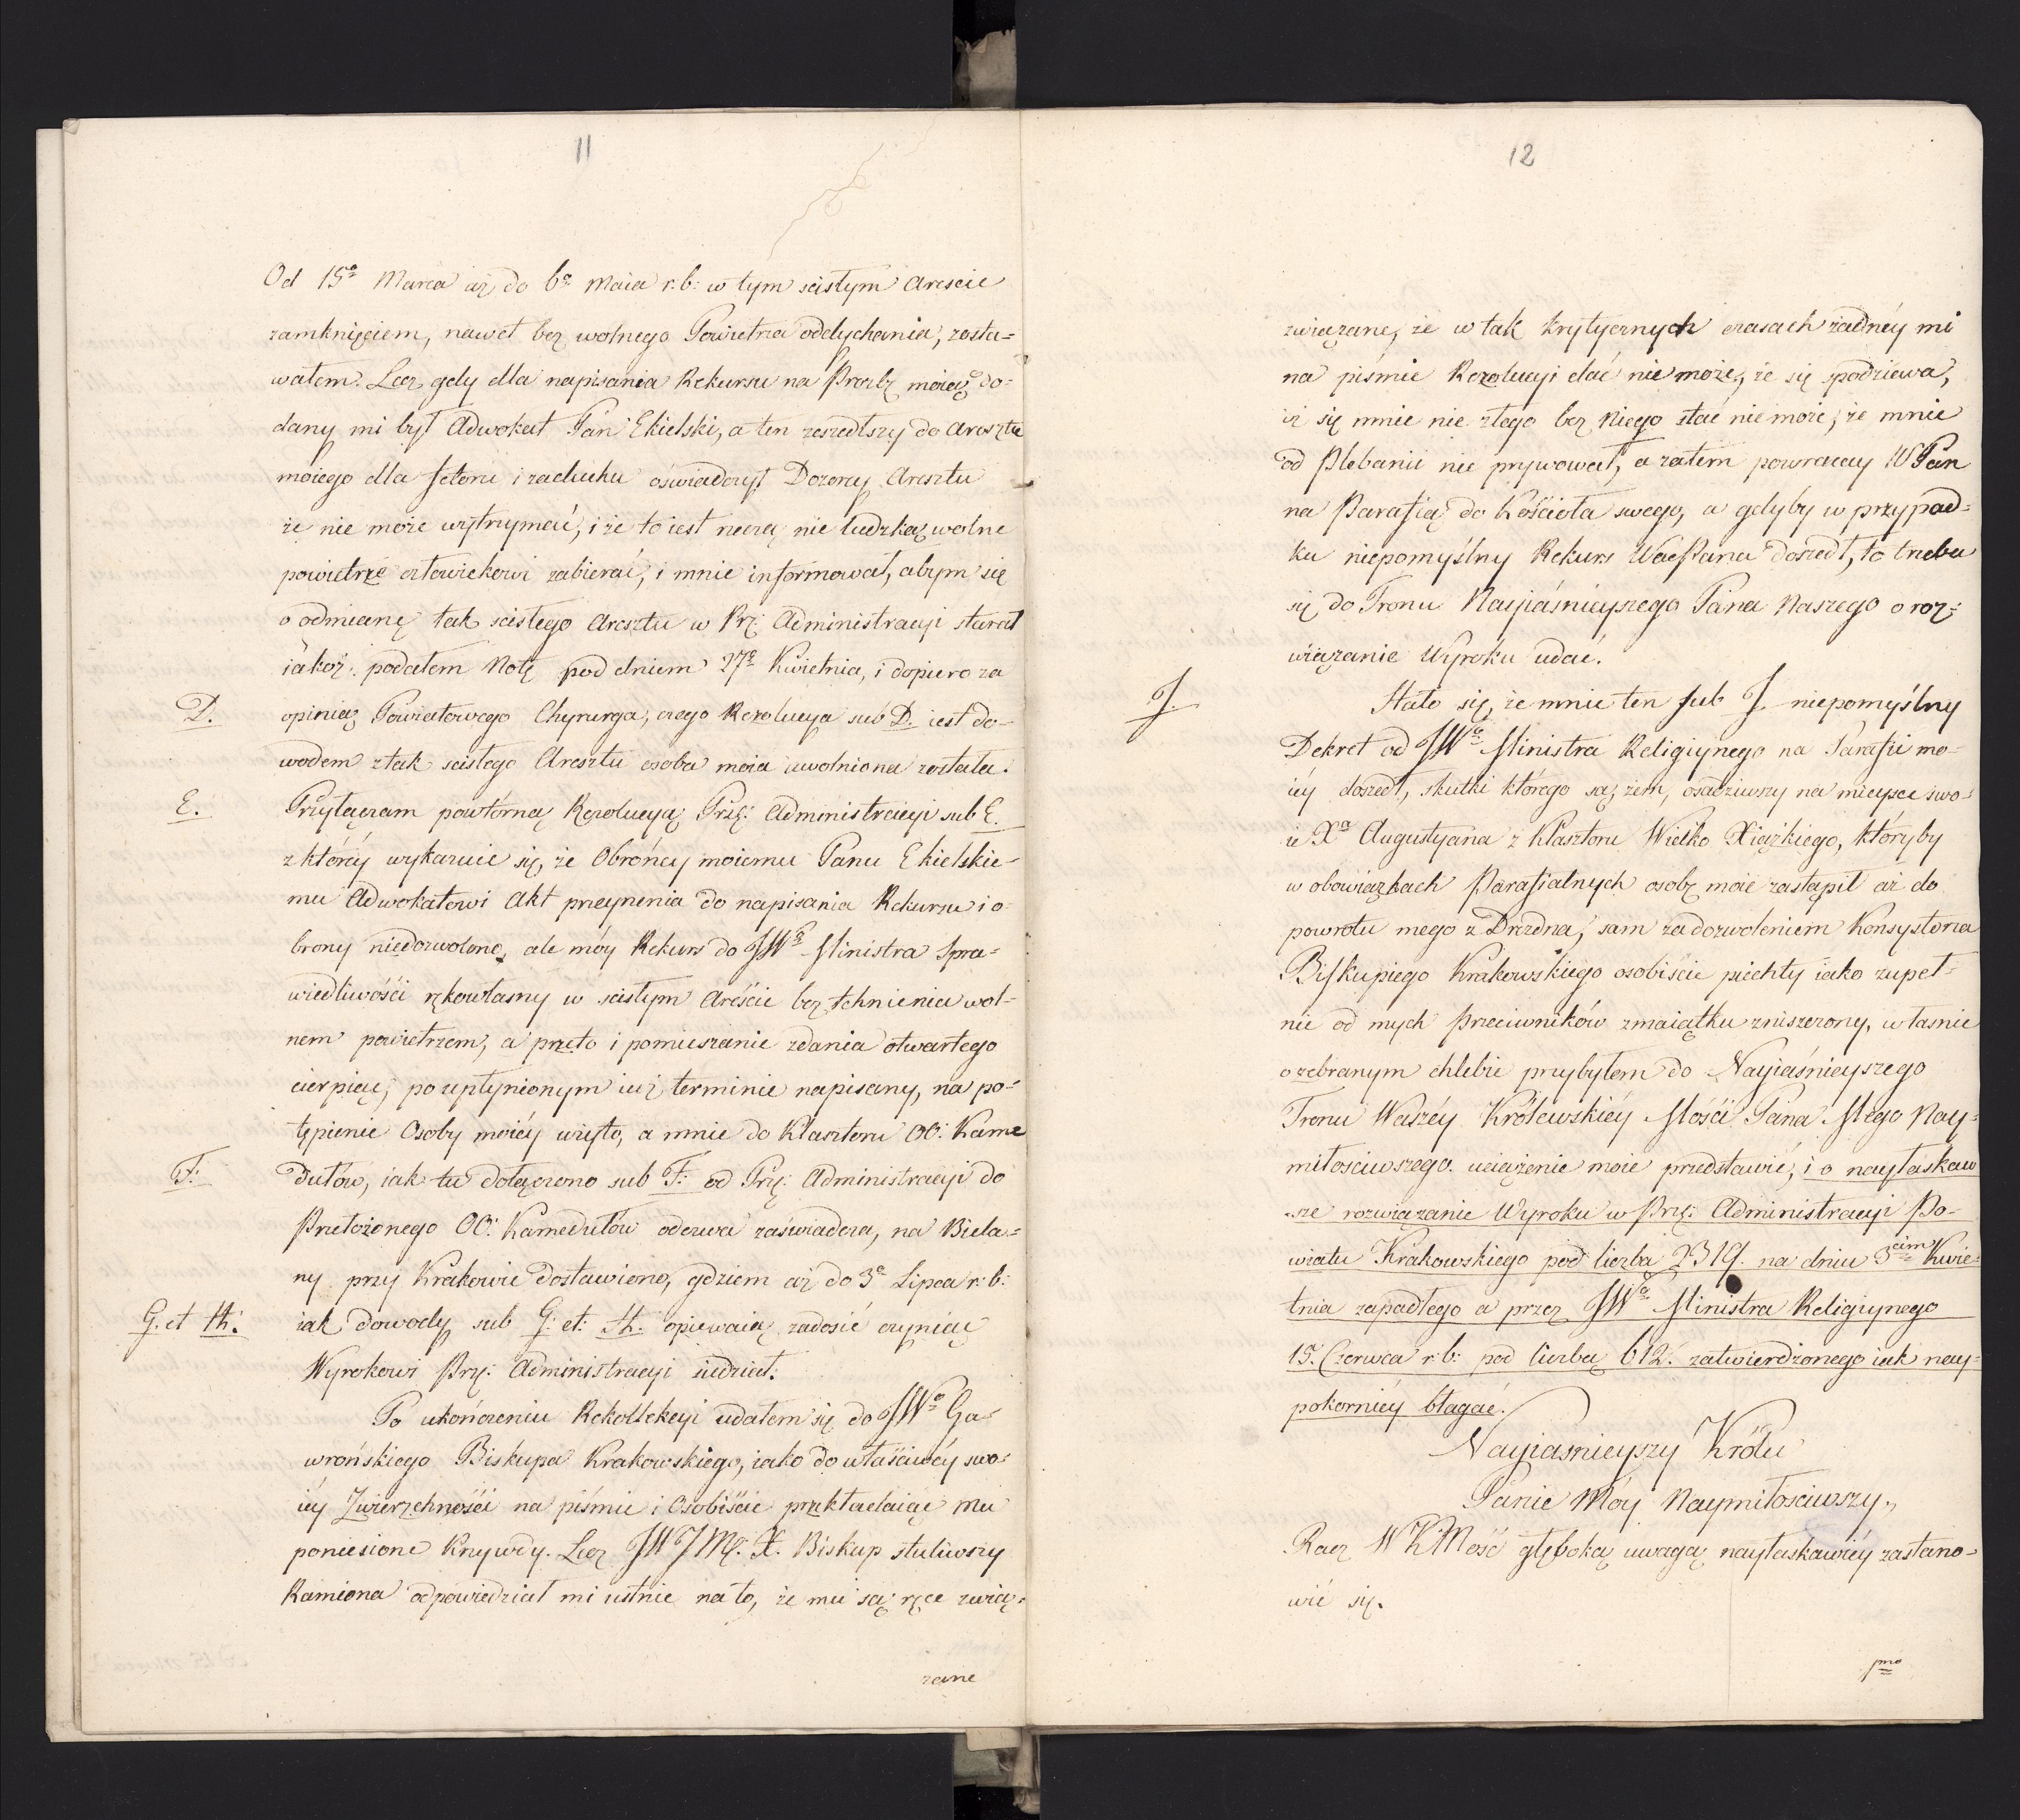 11
Od 15ᵒ Marca aż do 6ᵒ Maia r: b: w tym scisłym Areście
zamknięciem, nawet bez wolnego Powietrza oddychania, zosta=
wałem. Lecz gdy dla napisania Rekursu na Proźbę moią do=
dany mi był Adwokat Pan Ekielski, a ten zeszedłszy do Aresztu
moiego dla fetoru i zaduchu oświadczył Dozorcy Aresztu
że nie może wytrzymać, i że to iest rzeczą nie ludzką wolne
powietrze człowiekowi zabierać, i mnie informował, abym się
o odmianę tak scisłego Aresztu w Prz: Administracyi starał
iakoż podałem Notę pod dniem 27ᵒ Kwietnia, i dopiero za
D. opinią Powiatowego Chyrurga, czego Rezolucya sub D. iest do=
wodem z tak scisłego Aresztu osoba moia uwolniona została.
E. Przyłączam powtórną Rezolucyą Prz: Administracyi sub E.
z któréy wykazuie się, że Obrońcy moiemu Panu Ekielskie=
mu Adwokatowi Akt przeyrzenia do napisania Rekursu i o=
brony niedozwolono, ale móy Rekurs do JWᵒ Ministra Spra=
wiedliwości rękowłasny w scisłym Areście bez tchnienia wol=
nem powietrzem, a przeto i pomieszanie zdania otwartego
cierpiąc, po upłynionym iuż terminie napisany, na po=
tępienie Osoby moiéy wzięto, a mnie do Klasztoru OO: Kame
F: dułów, iak tu dołączono sub F: od Prz: Administracyi do
Przełożonego OO: Kamedułów odezwa zaświadcza, na Biela=
ny przy Krakowie dostawiono, gdziem aż do 3ᵒ Lipca r: b:
G. et H: iak dowody sub G: et: H: opiewaią zadosić czyniąc
Wyrokowi Prz: Administracyi siedział.
Po ukończeniu Rekollekcyi udałem się do JWᵒ Ga=
wrońskiego Biskupa Krakowskiego, iako do właściwéy swo=
iéy Zwierzchności na piśmie i Osobiście przekładaiąc Mu
poniesione Krzywdy. Lecz JWJMć: X. Biskup stuliwszy
Ramiona odpowiedział mi ustnie na to, że mu są ręce zwią=
zane
12
związane, że w tak krytycznych czasach żadnéy mi
na piśmie Rezolucyi dać nie może, że się spodziewa,
iż się mnie nic złego bez Niego stać nie może, że mnie
od Plebanii nie prywował, a zatem powracay WPan
na Parafią do Kościoła swego, a gdyby w przypad=
ku niepomyślny Rekurs WaćPana doszedł, to trzeba
się do Tronu Nayiaśnieyszego Pana Naszego o roz=
wiązanie Wyroku udać.
J. Stało się, że mnie ten sub J. niepomyślny
Dekret od JWᵒ Ministra Religiynego na Parafii mo=
iéy doszedł, skutki którego są, żem, osadziwszy na mieysce swo=
ie Xᵃ Augustyana z Klasztoru Wielko Xiążkiego, któryby
w obowiązkach Parafialnych osobę moie zastąpił aż do
powrotu mego z Drezdna, sam za dozwoleniem Konsystorza
Biskupiego Krakowskiego osobiście piechty iako zupeł=
nie od mych Przeciwników z maiątku zniszczony, własnie
o zebranym chlebie przybyłem do Nayiaśnieyszego
Tronu Waszéy Królewskiéy Mości Pana Mego Nay=
miłosciwszego. uciążenie moie przedstawić, i o nayłaskaw
=sze rozwiązanie Wyroku w Prz: Administracyi Po=
wiatu Krakowskiego pod liczba 2319. na dniu 3cim Kwie=
tnia zapadłego a przez JWᵒ Ministra Religiynego
15. Czerwca r: b: pod liczbą 612. zatwierdzonego iak nay=
pokorniéy błagać.
Nayiasnieyszy Królu
Panie Móy Naymiłosciwszy,
Racz WKMość głęboką uwagą nayłaskawiéy zastano=
wić się.
pmo